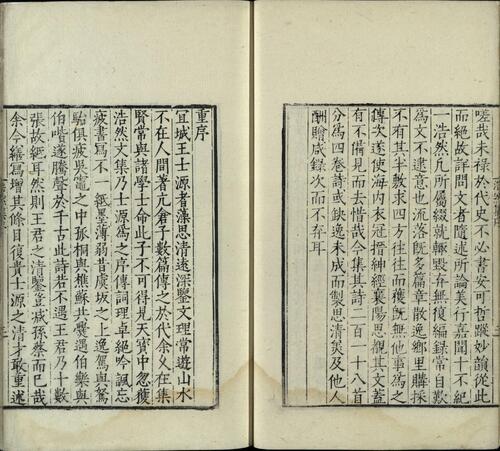 嗟哉未祿於代史不必書安可哲蹤妙韻從此
而絕故詳問文者隨述所論美行嘉聞十不紀
一浩然凡所屬綴就輒毀弃無復編錄常自歎
為文不逮意也流落既多篇章散逸鄉里購採
不有其半敷求四方往往而獲既無他事為之
傳次遂使海內衣冠搢紳經襄陽思覩其文蓋
有不備見而去惜哉今集其詩二百一十八首
分為四卷詩或缺逸未成而製思清美及他人
酬贈咸錄次而不弃耳
重序
宜城王士源者藻思清遠深鑒文理常遊山水
不在人間著亢倉子數篇傳之於代余久在集
賢常與諸學士命此子不可得見天寶中忽獲
浩然文集乃士源為之序傳詞理卓絕吟諷忘
疲書寫不一紙墨薄弱昔虞坂之上逸駕與駑
駘俱疲吳竈之中孤桐與樵蘇共爨遇伯樂與
伯喈遂騰聲於千古此詩若不遇王君乃十數
張故紙耳然則王君之清鑒豈減孫蔡而已哉
余今繕寫增其條目復貴士源之清才敢重述